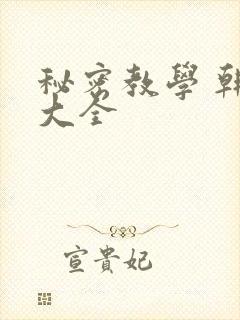 秘密教學
大全
宣貴妃